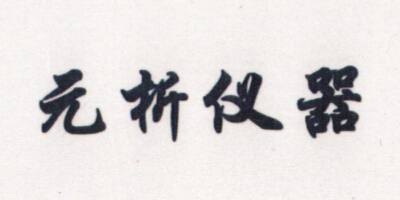 元析仪器